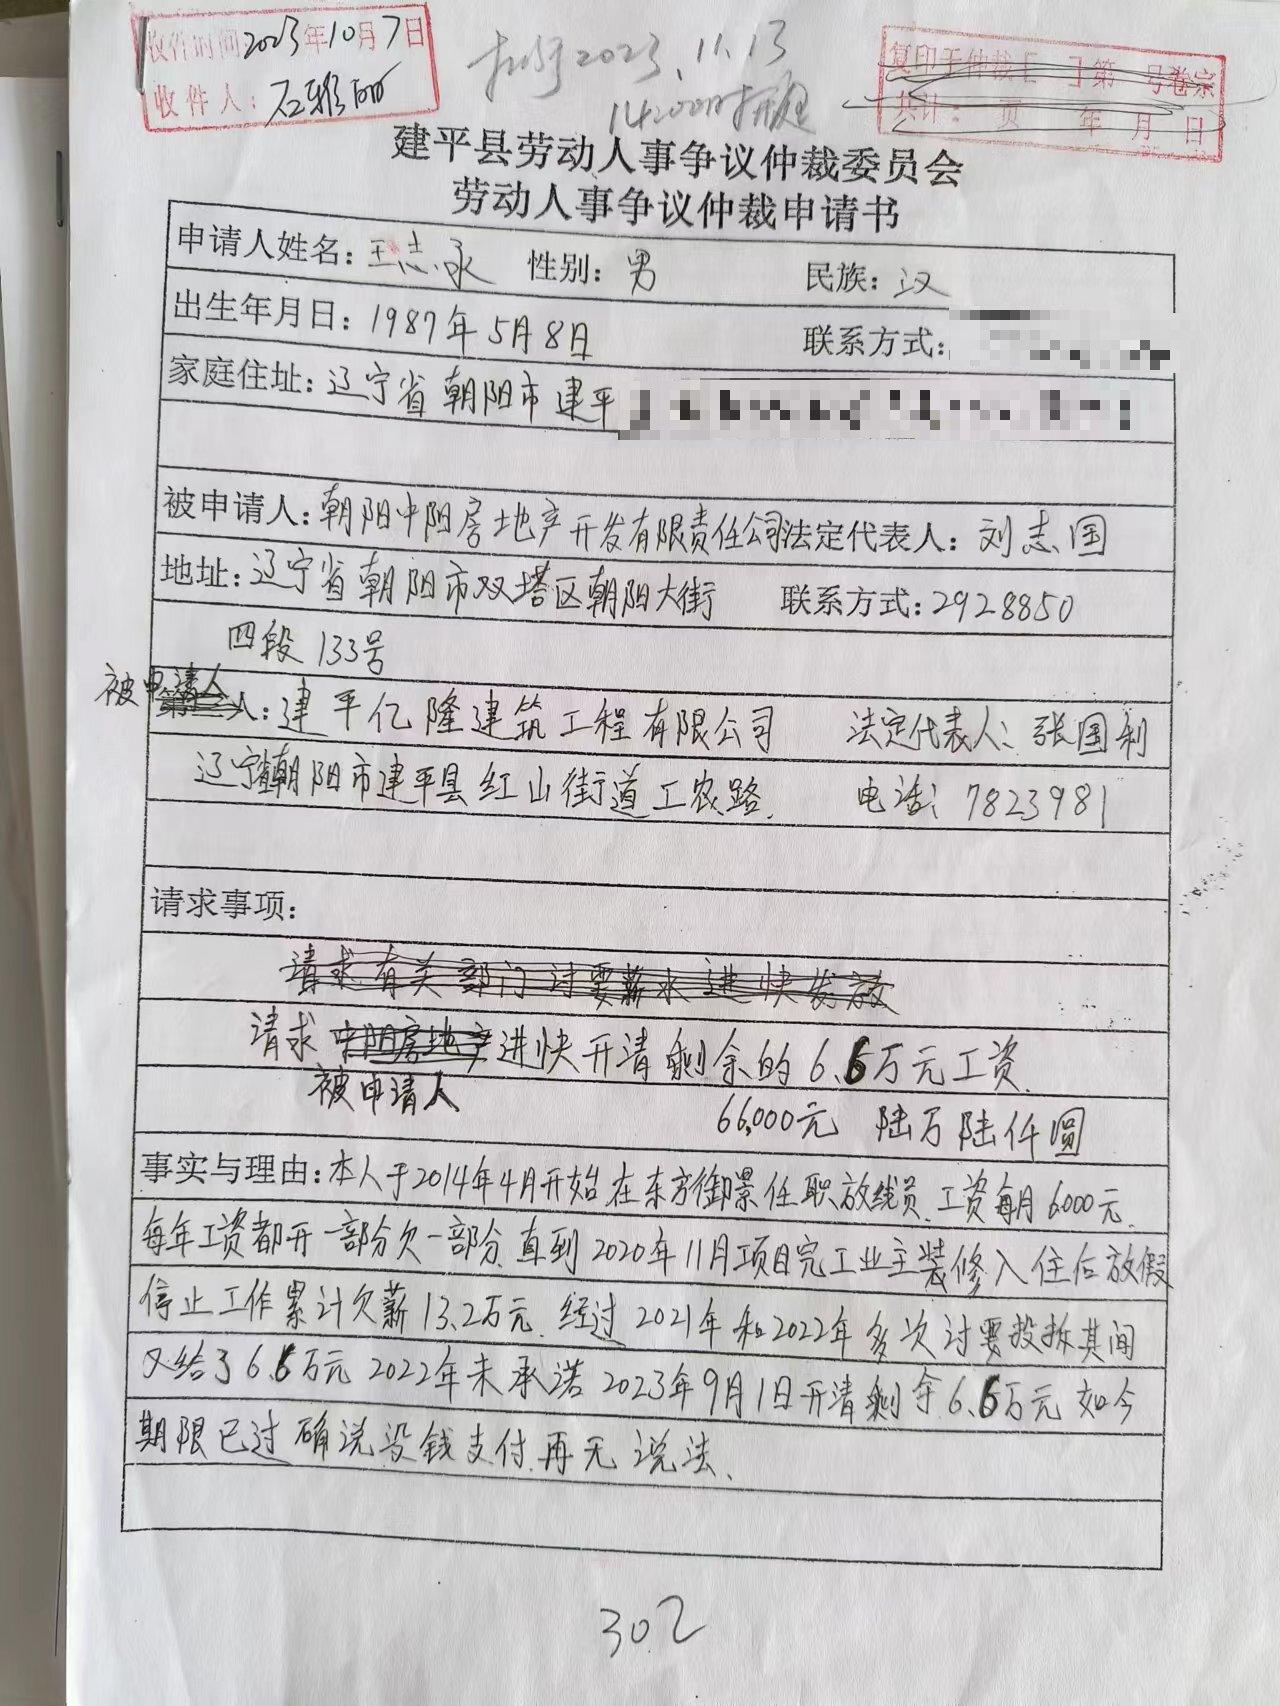 收件时间2023年10月7日
收件人：石雅丽
2023.11.13
14200时开庭
复印于仲裁[ ]第 号卷宗
共计： 页 年 月 日
建平县劳动人事争议仲裁委员会
劳动人事争议仲裁申请书
申请人姓名：王志永 性别：男 民族：汉
出生年月日：1987年5月8日 联系方式：
家庭住址：辽宁省朝阳市建平
被申请人：朝阳中阳房地产开发有限责任公司法定代表人：刘志国
地址：辽宁省朝阳市双塔区朝阳大街 联系方式：2928850
四段133号
被申请人
第三人：建平亿隆建筑工程有限公司 法定代表人：张国利
辽宁省朝阳市建平县红山街道工农路. 电话：7823981
请求事项：
请求有关部门讨要薪水进快发放
请求中阳房地产进快开清剩余的6.6万元工资.
被申请人
66,000元 陆万陆仟圆
事实与理由：本人于2014年4月开始在东方御景任职放线员.工资每月6000元.
每年工资都开一部分欠一部分.直到2020年11月项目完工业主装修入住后放假
停止工作累计欠薪13.2万元.经过2021年和2022年多次讨要投拆其间
又给了6.6万元2022年末承诺2023年9月1日开清剩余6.6万元如今
期限已过确说没钱支付.再无说法.
302